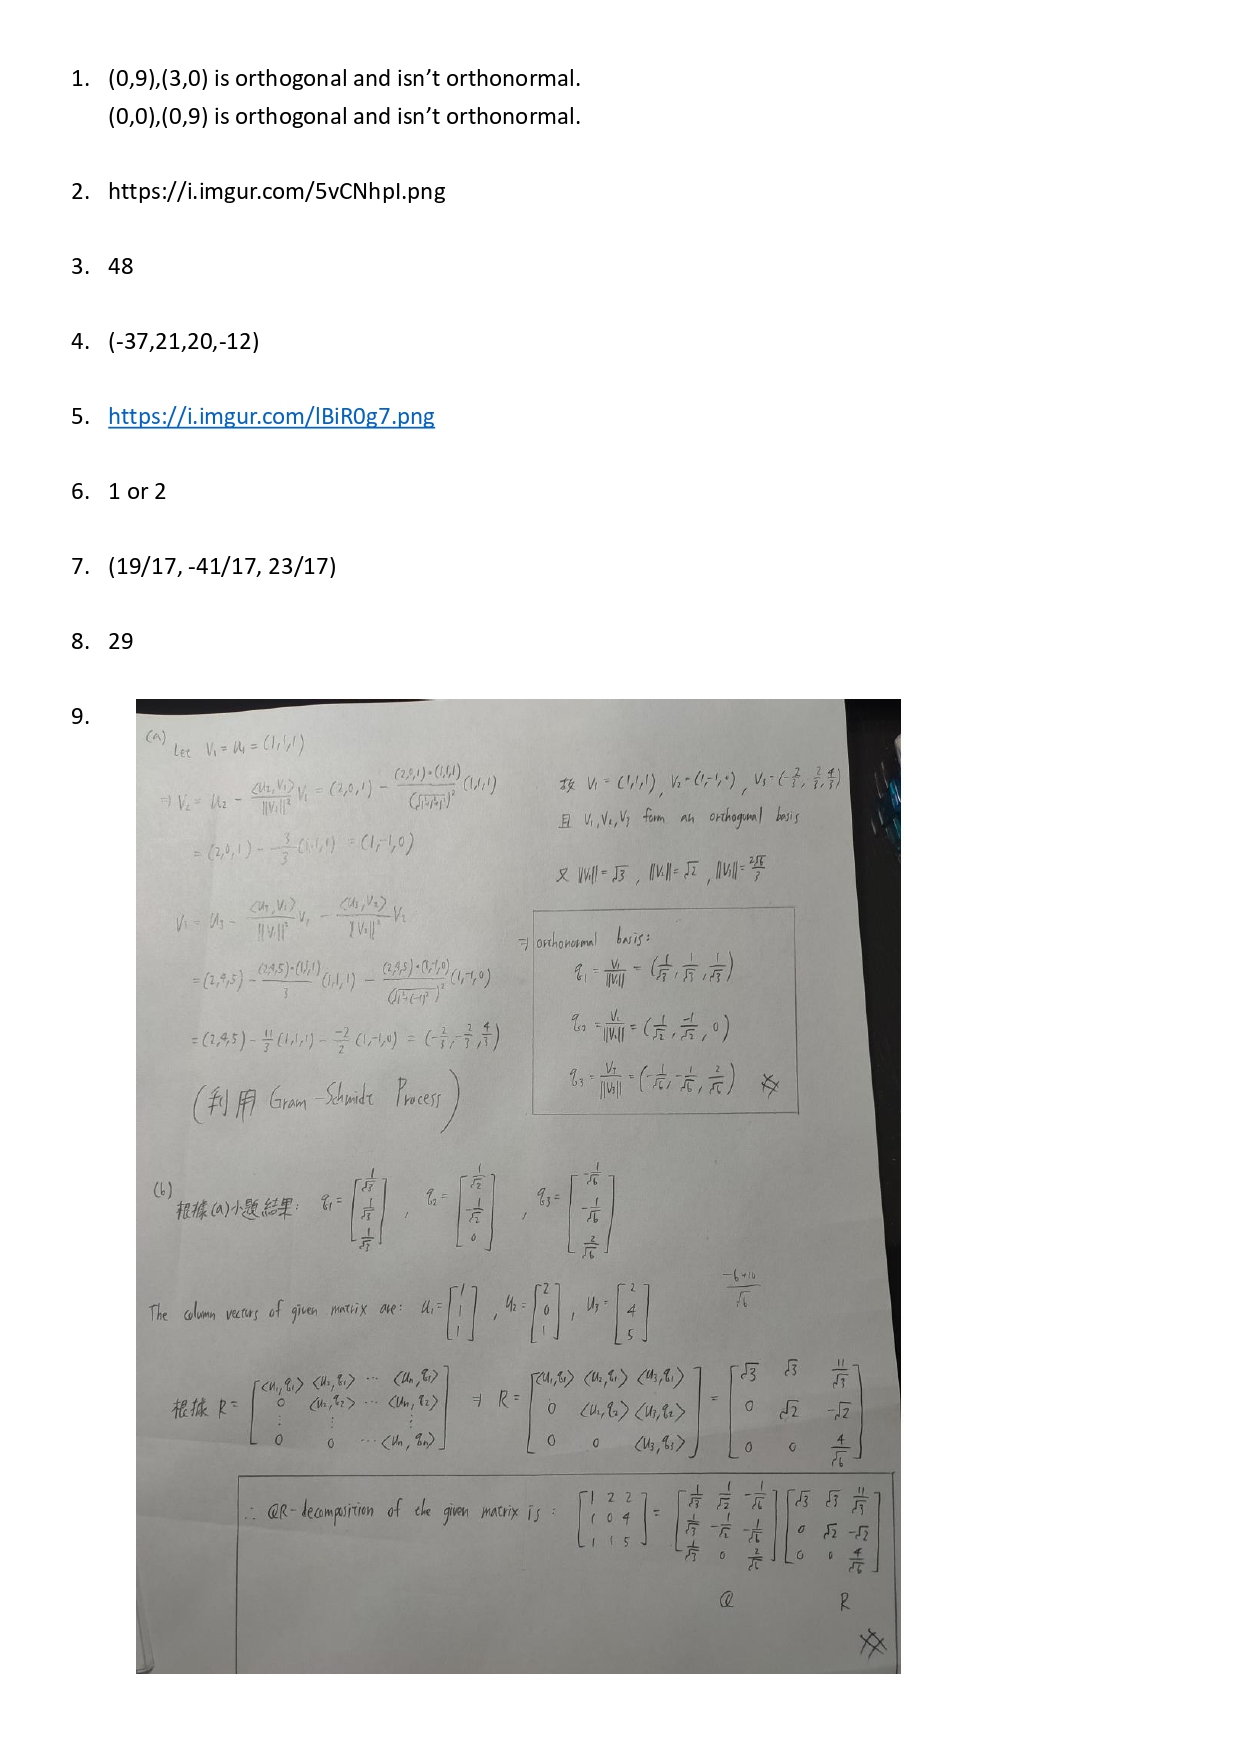 1. (0,9),(3,0) is orthogonal and isn’t orthonormal.
(0,0),(0,9) is orthogonal and isn’t orthonormal.
2. https://i.imgur.com/5vCNhpI.png
3. 48
4. (-37,21,20,-12)
5. https://i.imgur.com/lBiR0g7.png
6. 1 or 2
7. (19/17, -41/17, 23/17)
8. 29
9.
(a) Let V₁ = u₁ = (1,1,1)
⇒ V₂ = u₂ - <u₂,V₁>/||V₁||² V₁ = (2,0,1) - (2,0,1)•(1,1,1)/(√(1²+1²+1²))² (1,1,1)
= (2,0,1) - 3/3 (1,1,1) = (1,-1,0)
V₃ = u₃ - <u₃,V₁>/||V₁||² V₁ - <u₃,V₂>/||V₂||² V₂
= (2,4,5) - (2,4,5)•(1,1,1)/3 (1,1,1) - (2,4,5)•(1,-1,0)/(√(1²+(-1)²))² (1,-1,0)
= (2,4,5) - 11/3 (1,1,1) - -2/2 (1,-1,0) = (-2/3, -2/3, 4/3)
(利用 Gram-Schmidt Process)
故 V₁ = (1,1,1), V₂ = (1,-1,0), V₃ = (-2/3, 2/3, 4/3)
且 V₁,V₂,V₃ form an orthogonal basis
又 ||V₁|| = √3, ||V₂|| = √2, ||V₃|| = 2√6/3
⇒ orthonormal basis:
q₁ = V₁/||V₁|| = (1/√3, 1/√3, 1/√3)
q₂ = V₂/||V₂|| = (1/√2, -1/√2, 0)
q₃ = V₃/||V₃|| = (-1/√6, -1/√6, 2/√6)
(b) 根據(a)小題結果: q₁ = [1/√3 1/√3 1/√3], q₂ = [1/√2 -1/√2 0], q₃ = [-1/√6 -1/√6 2/√6]
-6+10/√6
The column vectors of given matrix are: u₁ = [1 1 1], u₂ = [2 0 1], u₃ = [2 4 5]
根據 R = [<u₁,q₁> <u₂,q₁> ⋯ <uₙ,q₁> 0 <u₂,q₂> ⋯ <uₙ,q₂> ⋮ ⋮ ⋮ 0 0 ⋯ <uₙ,qₙ>] ⇒ R = [<u₁,q₁> <u₂,q₁> <u₃,q₁> 0 <u₂,q₂> <u₃,q₂> 0 0 <u₃,q₃>] = [√3 √3 11/√3 0 √2 -√2 0 0 4/√6]
∴ QR-decomposition of the given matrix is: [1 2 2 1 0 4 1 1 5] = [1/√3 1/√2 -1/√6 1/√3 -1/√2 -1/√6 1/√3 0 2/√6] [√3 √3 11/√3 0 √2 -√2 0 0 4/√6]
Q R